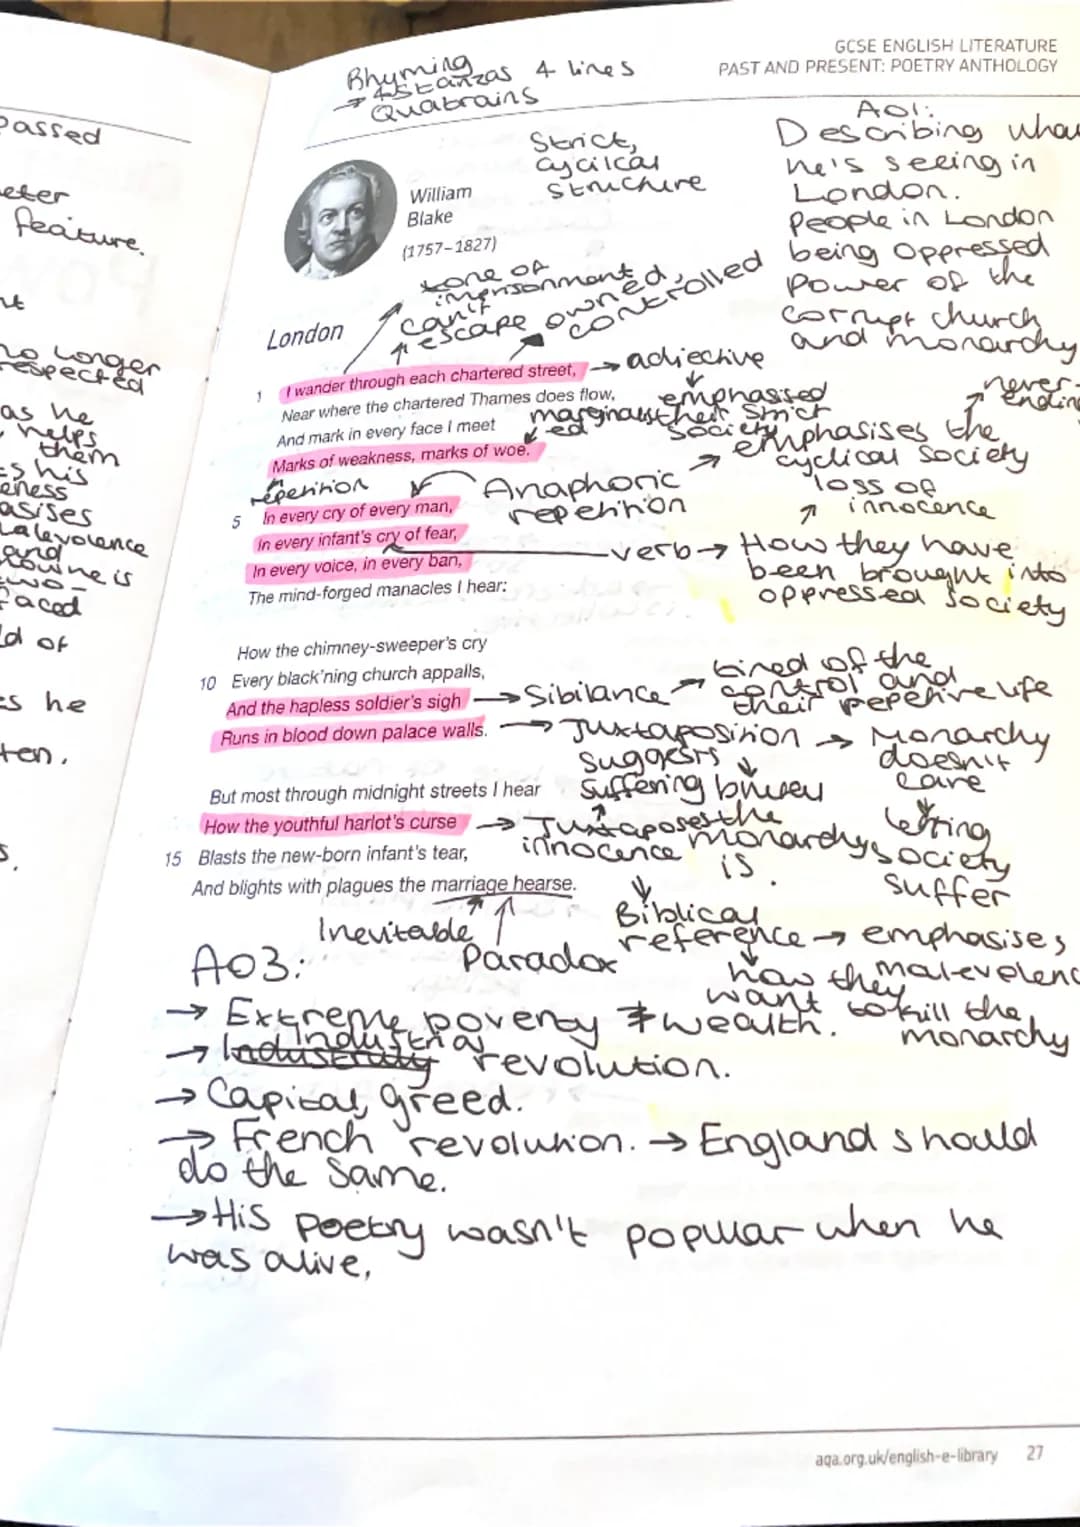 GCSE ENGLISH LITERATURE
PAST AND PRESENT: POETRY ANTHOLOGY
Rhyming
→ 4 stanzas 4 lines
Quatrains
Strict,
structure
William
Blake
(1757–1827)
AO1:
Describing wha
he's seeing in
London.
People in London
being oppressed
Power of the
corrupt church
and monarchy
tone of
can't
escape
owned,
controlled
London
1 I wander through each chartered street,
→ adjective
Near where the chartered Thames does flow,
And mark in every face I meet
Marks of weakness, marks of woe.
emphasised
their strict
society
marginalis
ed
never-
ending
emphasises the
cyclical society
loss of
innocence
repetition
Anaphoric
repetition
5 In every cry of every man,
In every infant's cry of fear,
In every voice, in every ban,
The mind-forged manacles I hear:
verb → How they have
been brought into
oppressed society
How the chimney-sweeper's cry
10 Every black'ning church appalls,
And the hapless soldier's sigh
Runs in blood down palace walls.
→ Sibilance
tired of the
control and
their repetive life
→ Juxtaposition → Monarchy
doesn't
care
letting
society
suffer
suggests
suffering
But most through midnight streets I hear
How the youthful harlot's curse
15 Blasts the new-born infant's tear,
And blights with plagues the marriage hearse.
→ Juxtaposes the
innocence monarchy
is.
Inevitable
Paradox
Biblical
reference → emphasises
malevelenc
how they
want to kill the
monarchy
AO3:
→ Extreme poverty ≠ wealth.
→ Industrial revolution.
→ Capital, greed.
→ French revolution. → England should
do the same.
→ His poetry wasn't popular when he
was alive,
passed
eter
feature.
nt
no longer
respected
as he
helps
them
es his
eness
asises
and
two-
faced
ld of
es he
ten.
s.
aqa.org.uk/english-e-library 27